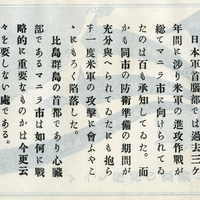 日本軍首腦部では過去三ケ
年間に渉り米軍の進攻作戰が
總てマニラ市に向けられてゐ
たのは百も承知してゐた。而
かも同市の防衛準備の期間が
充分與へられてゐたにも拘ら
ず一度米軍の攻擊に會ふやこ
にもろく陷落した。
比島群島の首都であり心臟
部であるマニラ市は如何に戰
略的に重要なものかは今更云
々を要しない處である。